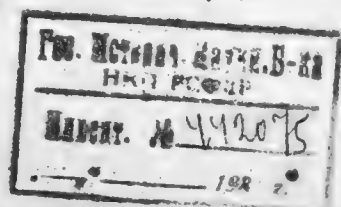 Гос. Истенич. Научн. Б-ка
НКП РСФСР
Инвент. № 442075
192 г.